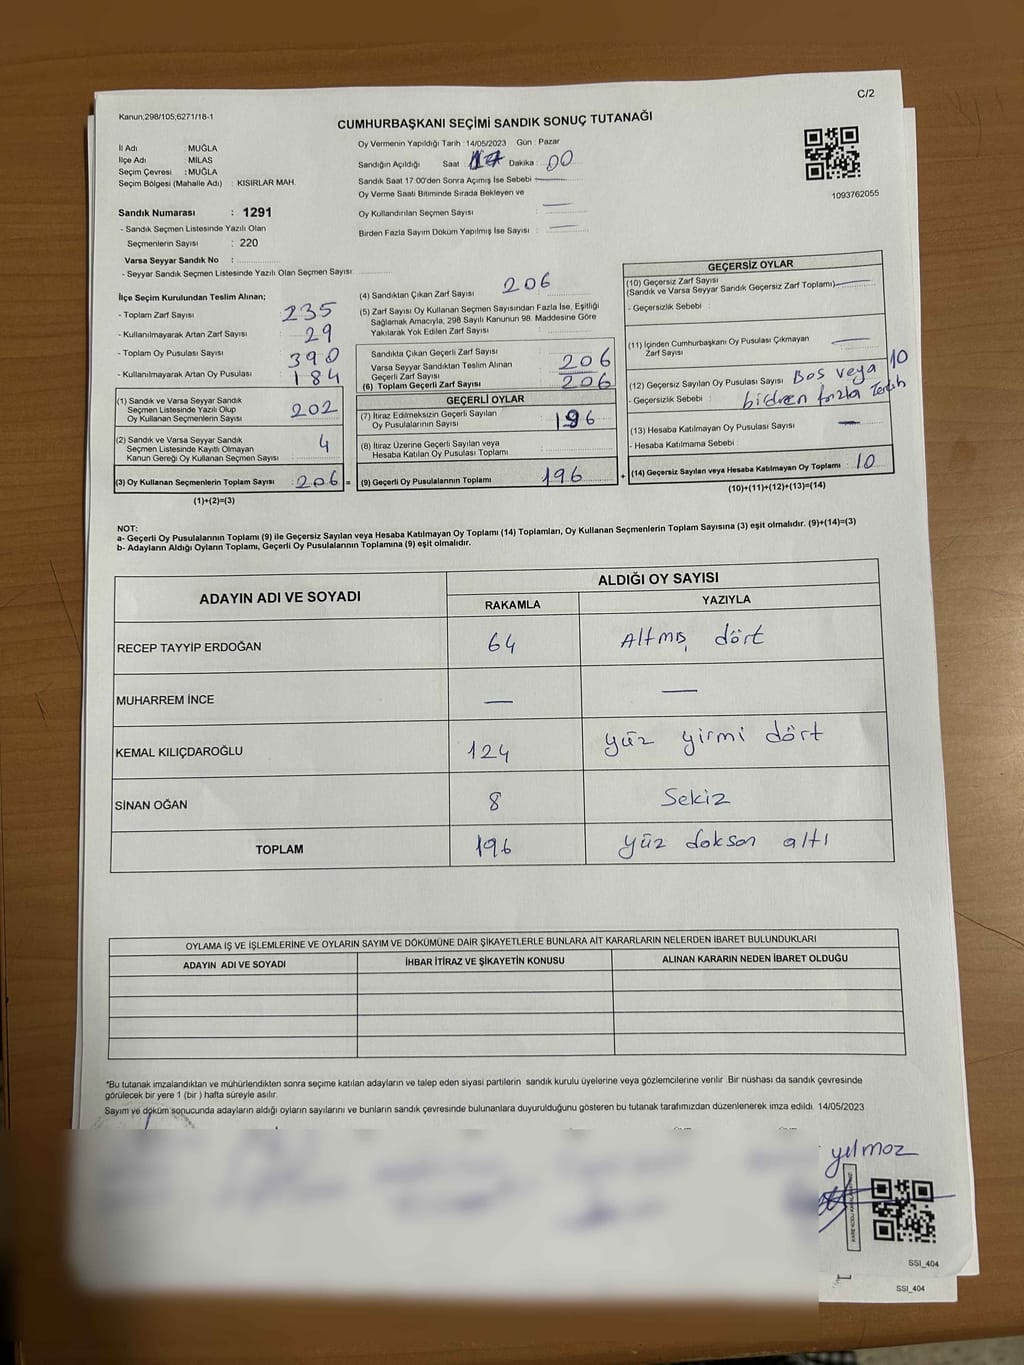 C/2
Kanun,298/105,6271/18-1
CUMHURBAŞKANI SEÇİMİ SANDIK SONUÇ TUTANAĞI
İl Adı : MUĞLA
İlçe Adı : MİLAS
Seçim Çevresi : MUĞLA
Seçim Bölgesi (Mahalle Adı) : KISIRLAR MAH.
Sandık Numarası : 1291
- Sandık Seçmen Listesinde Yazılı Olan
Seçmenlerin Sayısı : 220
Varsa Seyyar Sandık No :
- Seyyar Sandık Seçmen Listesinde Yazılı Olan Seçmen Sayısı
Oy Vermenin Yapıldığı Tarih : 14/05/2023 Gün : Pazar
Sandığın Açıldığı Saat 17 Dakika : 00
Sandık Saat 17:00'den Sonra Açımış İse Sebebi
Oy Verme Saati Bitiminde Sırada Bekleyen ve
Oy Kullandırılan Seçmen Sayısı :
Birden Fazla Sayım Döküm Yapılmış İse Sayısı :
1093762055
İlçe Seçim Kurulundan Teslim Alınan;
- Toplam Zarf Sayısı : 235
- Kullanılmayarak Artan Zarf Sayısı : 29
- Toplam Oy Pusulası Sayısı : 390
- Kullanılmayarak Artan Oy Pusulası : 184
(1) Sandık ve Varsa Seyyar Sandık
Seçmen Listesinde Yazılı Olup
Oy Kullanan Seçmenlerin Sayısı : 202
(2) Sandık ve Varsa Seyyar Sandık
Seçmen Listesinde Kayıtlı Olmayan
Kanun Gereği Oy Kullanan Seçmen Sayısı : 4
(3) Oy Kullanan Seçmenlerin Toplam Sayısı : 206 =
(1)+(2)=(3)
(4) Sandıktan Çıkan Zarf Sayısı : 206
(5) Zarf Sayısı Oy Kullanan Seçmen Sayısından Fazla İse, Eşitliği
Sağlamak Amacıyla, 298 Sayılı Kanunun 98. Maddesine Göre
Yakılarak Yok Edilen Zarf Sayısı :
Sandıkta Çıkan Geçerli Zarf Sayısı : 206
Varsa Seyyar Sandıktan Teslim Alınan
Geçerli Zarf Sayısı
(6) Toplam Geçerli Zarf Sayısı : 206
GEÇERLİ OYLAR
(7) İtiraz Edilmeksizin Geçerli Sayılan
Oy Pusulalarının Sayısı : 196
(8) İtiraz Üzerine Geçerli Sayılan veya
Hesaba Katılan Oy Pusulası Toplamı
(9) Geçerli Oy Pusulalarının Toplamı : 196 +
GEÇERSİZ OYLAR
(10) Geçersiz Zarf Sayısı
(Sandık ve Varsa Seyyar Sandık Geçersiz Zarf Toplamı)
- Geçersizlik Sebebi :
(11) İçinden Cumhurbaşkanı Oy Pusulası Çıkmayan
Zarf Sayısı
(12) Geçersiz Sayılan Oy Pusulası Sayısı : 10
- Geçersizlik Sebebi : Bos veya
birden fazla
(13) Hesaba Katılmayan Oy Pusulası Sayısı :
- Hesaba Katılmama Sebebi :
(14) Geçersiz Sayılan veya Hesaba Katılmayan Oy Toplamı : 10
(10)+(11)+(12)+(13)=(14)
NOT:
a- Geçerli Oy Pusulalarının Toplamı (9) ile Geçersiz Sayılan veya Hesaba Katılmayan Oy Toplamı (14) Toplamları, Oy Kullanan Seçmenlerin Toplam Sayısına (3) eşit olmalıdır. (9)+(14)=(3)
b- Adayların Aldığı Oyların Toplamı, Geçerli Oy Pusulalarının Toplamına (9) eşit olmalıdır.
ADAYIN ADI VE SOYADI
ALDIĞI OY SAYISI
RAKAMLA YAZIYLA
RECEP TAYYİP ERDOĞAN 64 Altmış dört
MUHARREM İNCE — —
KEMAL KILIÇDAROĞLU 124 yüz yirmi dört
SİNAN OĞAN 8 Sekiz
TOPLAM 196 yüz doksan altı
OYLAMA İŞ VE İŞLEMLERİNE VE OYLARIN SAYIM VE DÖKÜMÜNE DAİR ŞİKAYETLERLE BUNLARA AİT KARARLARIN NELERDEN İBARET BULUNDUKLARI
ADAYIN ADI VE SOYADI İHBAR İTİRAZ VE ŞİKAYETİN KONUSU ALINAN KARARIN NEDEN İBARET OLDUĞU
*Bu tutanak imzalandıktan ve mühürlendikten sonra seçime katılan adayların ve talep eden siyasi partilerin sandık kurulu üyelerine veya gözlemcilerine verilir. Bir nüshası da sandık çevresinde
görülecek bir yere 1 (bir) hafta süreyle asılır.
Sayım ve döküm sonucunda adayların aldığı oyların sayılarını ve bunların sandık çevresinde bulunanlara duyurulduğunu gösteren bu tutanak tarafımızdan düzenlenerek imza edildi. 14/05/2023
yılmaz
SSI_404
SSI_404